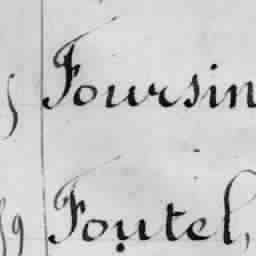 Foursin
Foutel,